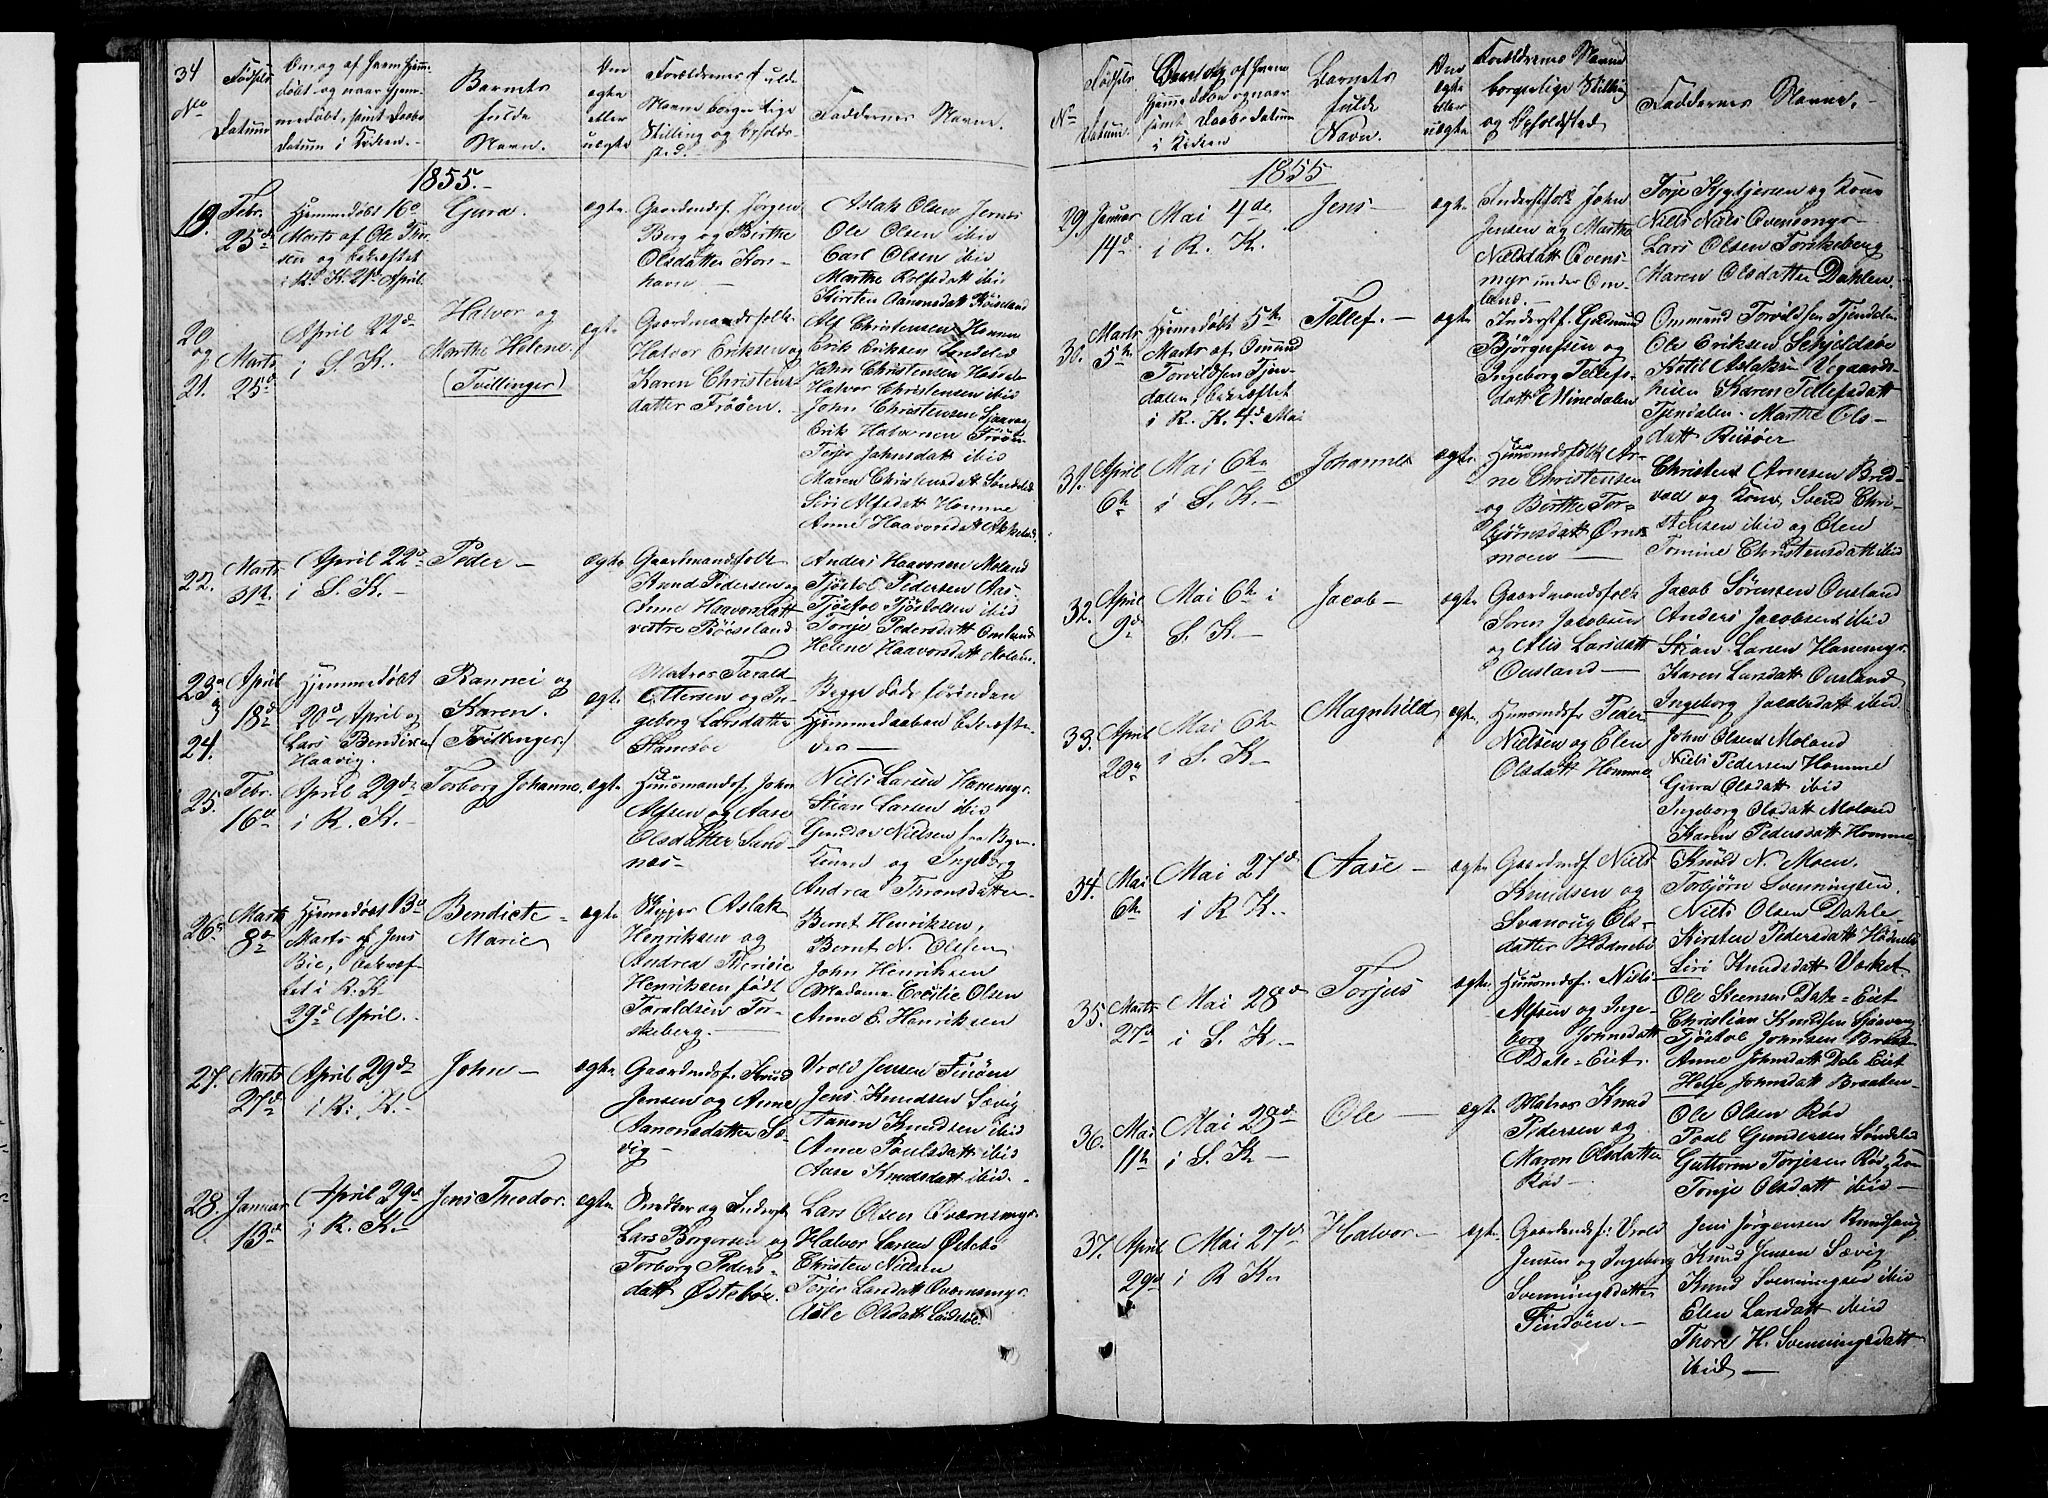 34
No
Fødsels
Datum
Om og af hvem hjem-
døbt og naar hjem-
medøbt, samt Daabs
Datum i Kirken.
Barnets
fulde
Navn.
Om
ægte
eller
uægte
Forældrenes fulde
Navne borgerlige
Stilling og Opholds-
sted.
Faddernes Navne.
1855.
19.
Febr.
25de
Hjemmedøbt 16de
Marts af Ole
og bekræftet
i R. K. 21de April.
Gura.
ægte
Gaardmdsf. Jørgen
Berg og Berthe
Olsdatter
Aslak Olsen
Ole Olsen ibid
Carl Olsen ibid
Marthe Rolfsdatt ibid
Kirsten Aanonsdatt Røiseland
20
og
21.
Marts
25de
April 22de
i S. K.
Halvor og
Marthe Helene.
(Tvillinger)
ægte
Gaardmandsfolk
Halvor Eriksen og
Karen Christens-
datter Frøøen.
Alf Christensen Homme
Erik Eriksen Søndeled
John Christensen
Halvor Christensen ibid
John Christensen Sjaavaag
Erik Halvorsen Frøøen
Johnsdatt ibid
Maren Christensdatt Søndeled
Siri Alfsdatt Homme
Anne Haavorsdatt Akkeland
22.
Marts
31te
April 22de
i S. K. —
Peder —
ægte
Gaardmandsfolk
Knud Pedersen og
Anne Haavorsdatt
vestre Røiseland
Anders Haavorsen Moland
Tjøstol Pedersen Aas
Tjøstol Tjøstolsen ibid
Torje Pedersdatt Omland
Helene Haavorsdatt Moland
23 og
24.
April
18de
Hjemmedøbt
20de April af
Lars Bendixen
Haavig.
Rannei og
Karen.
(Tvillinger.)
ægte
Matros Tarald
Ottersen og In-
geborg Larsdatter
Stamsøe
Begge døde førinden
Hjemmedaaben bekræfte-
des —
25.
Febr.
16de
April 29de
i R. K. —
Torborg Johanne.
ægte
Huusmandsf. John
Alfsen og Aase
Olsdatter Sand-
næs —
Niels Larsen Hanemyr
Stian Larsen ibid
Gunder Nielsen fra Byen
og Ingeborg
Andrea Thronsdatter
26.
Marts
8de
Hjemmedøbt 13de
Marts af Jens
Bie, bekræf-
tet i R. K.
29de April. —
Bendicte
Marie
ægte
Skipper Aslak
Henriksen og
Andrea Therisie
Henriksen født
Taraldsen Tor-
skeberg. —
Bernt Henriksen,
Bernt N. Olsen
John Henriksen
Madame Cecilie Olsen
Anne E. Henriksen
27.
Marts
27de
April 29de
i R. K. —
John —
ægte
Gaardmdsf. Knud
Jensen og Anne
Aanonsdatter Sæ-
vig —
Vrold Jensen Findøen
Jens Knudsen Sævig
Aanon Knudsen ibid
Anne Poulsdatt ibid
Aase Knudsdatt ibid. —
28.
Januar
13de
April 29de
i R. K. —
Jens Theodor.
ægte
Snedker og Inderst
Lars Børgersen og
Torborg Peders-
datt Østebøe.
Lars Olsen Qværnsmyr
Halvor Larsen Østebø
Christen Nielsen
Larsdatt Qværnsmyr
Olsdatt
No
Fødsels
Datum.
Om og af hvem
Hjemmedøbt og naar
samt Daabs Datum
i Kirken
Barnets
fulde
Navn.
Om
ægte
eller
uægte
Forældrenes Navne
borgerlige Stilling
og Opholdssted
Faddernes Navne.
1855
29.
Januar
14de
Mai 4de
i R. K.
Jens —
ægte
Inderstfolk John
Jensen og Marthe
Nielsdatt Qvens-
myr under Om-
land. —
Torje og Kone
Niels Niels Qvensmyr
Lars Olsen Torskeberg
Maren Olsdatter Dahlen
30.
Marts
5te
Hjemmedøbt 5te
Marts af Omund
Torvildsen Tjen-
dalen, bekræftet
i R. K. 4de Mai
Tellef. —
ægte
Inderstf. Gudmund
Bjørgufsen og
Ingeborg Tellefs-
datt Minedalen
Ommund Torvildsen Tjendalen
Ole Eriksen Schjeldsøe
Ketil Aslaksen Vegaards-
heien Karen Tellefsdatt
Tjendalen. Marthe Ols-
datt Riisøer
31.
April
6te
Mai 6te
i S. K. —
Johannes
ægte
Huusmdsfolk Ar-
ne Christensen
og Berthe Tor-
bjørnsdatt Ørns-
moen —
Christen Arnesen Bred-
vad og Kone, Svend Chri-
stensen ibid og Elen
Tomine Christensdatt ibid
32.
April
9de
Mai 6te i
S. K. —
Jacob —
ægte
Gaardmandsfolk
Søren Jacobsen
og Alis Larsdatt
Ousland —
Jacob Sørensen Ousland
Anders Jacobsen ibid
Stian Larsen Hanemyr
Karen Larsdatt Ousland
Ingeborg Jacobsdatt ibid
33.
April
20de
Mai 6te
i S. K. —
Magnhild
ægte
Huusmdsf. Peder
Nielsen og Elen
Olsdatt Homme
John Olsen Moland
Niels Pedersen Homme
Gura Olsdatt ibid
Ingeborg Olsdatt Moland
Karen Pedersdatt Homme
34.
Mai
6te
Mai 27de
i R K. —
Aase —
ægte
Gaardmdsf. Niels
Knudsen og
Svanoug Ols-
datter Hødnebø
Knud N. Moen.
Torbjørn Svenningsen.
Niels Olsen Dahle
Kirsten Pedersdatt Hødnebø
Siri Knudsdatt Vasket
35.
Marts
27de
Mai 28de
i S. K. —
Torjus
ægte
Huusmdsf. Niels
Alfsen og Inge-
borg Johnsdatt
Dale-Eiet.
Ole Steensen Dale-Eiet
Christian Knudsen Sjaavaag
Tjøstol Johnsen Braaten
Anne Johnsdatt Dale Eiet
Helje Johnsdatt Braaten —
36.
Mai
11te
Mai 28de
i S. K. —
Ole —
ægte
Matros Knud
Pedersen og
Maren Olsdatter
Rød —
Ole Olsen Rød
Povl Gundersen Søndeled
Guttorm Torjesen Rød, Kone
Tonje Olsdatt ibid —
37.
April
29de
Mai 27de
i R K.
Halvor —
ægte
Gaardmdsf. Vrold
Jensen og Ingeborg
Svenningsdatter
Findøen. —
Jens Jørgensen
Knud Jensen Sævig
Knud Svenningsen ibid
Elen Larsdatt ibid
Thore H. Svenningsdatt
ibid —